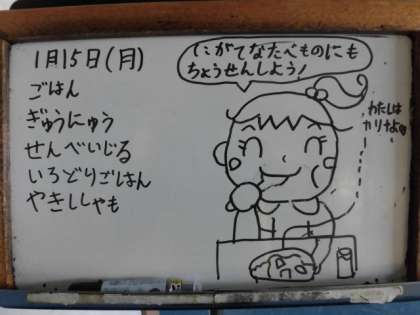 1月15日(月)
ごはん
ぎゅうにゅう
せんべいじる
いろどりごはん
やきししゃも
にがてなたべものにも
ちょうせんしよう!
わたしは